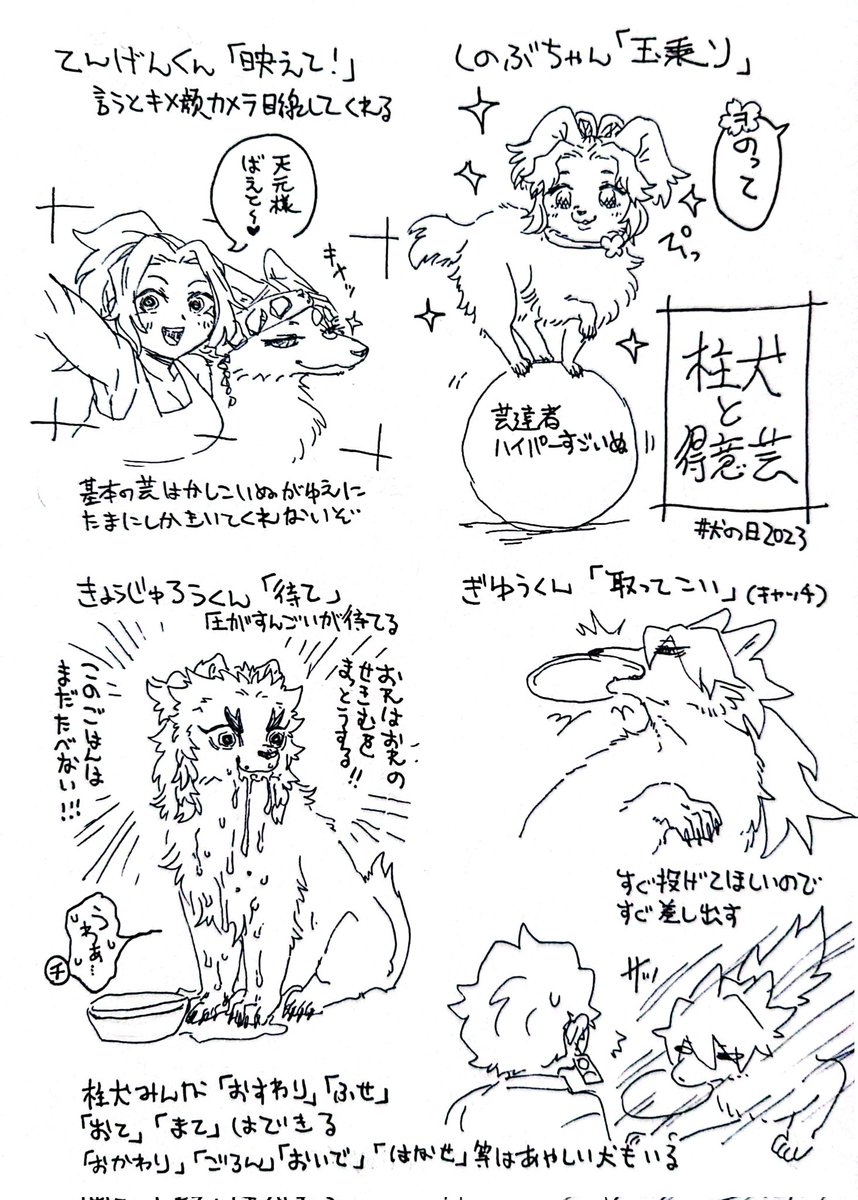 てんげんくん「映えて!」
言うとキメ顔カメラ目線してくれる
天元様
ばえて〜♥
キメッ
基本の芸はかしこいぬがゆえに
たまにしかきいてくれないぞ
しのぶちゃん「玉乗り」
のって
ぴっ
芸達者
ハイパーすごいぬ
柱犬
と
得意芸
#犬の日2023
きょうじゅろうくん「待て」
圧がすんごいが待てる
おれはおれの
せきむを
まっとうする!!
このごはんは
まだたべない!!!
うわぁ…
チ
ぎゆうくん「取ってこい」(キャッチ)
すぐ投げてほしいので
すぐ差し出す
ザッ
柱犬みんな「おすわり」「ふせ」
「おて」「まて」はできる
「おかわり」「ごろん」「おいで」「はなせ」等はあやしい犬もいる